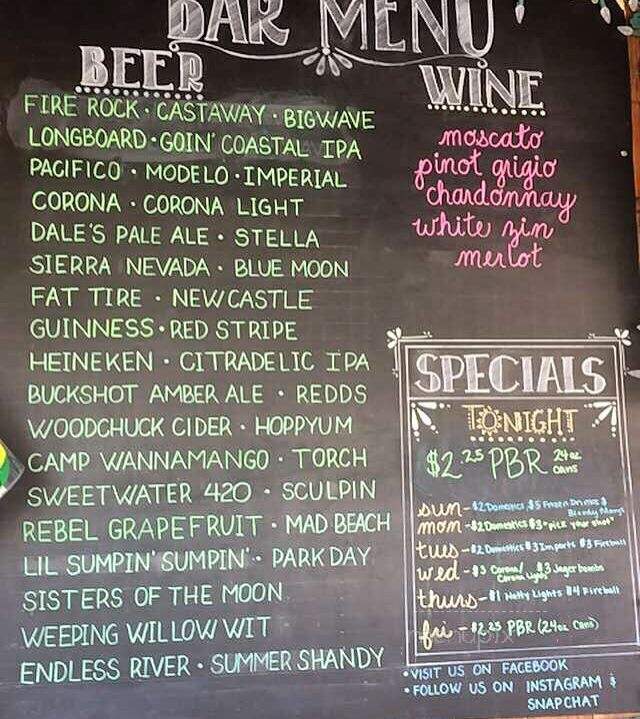 BAR MENU
BEER
FIRE ROCK · CASTAWAY · BIGWAVE
LONGBOARD · GOIN' COASTAL IPA
PACIFICO · MODELO · IMPERIAL
CORONA · CORONA LIGHT
DALE'S PALE ALE · STELLA
SIERRA NEVADA · BLUE MOON
FAT TIRE · NEWCASTLE
GUINNESS · RED STRIPE
HEINEKEN · CITRADELIC IPA
BUCKSHOT AMBER ALE · REDDS
WOODCHUCK CIDER · HOPPYUM
CAMP WANNAMANGO · TORCH
SWEETWATER 420 · SCULPIN
REBEL GRAPEFRUIT · MAD BEACH
LIL SUMPIN' SUMPIN' · PARK DAY
SISTERS OF THE MOON
WEEPING WILLOW WIT
ENDLESS RIVER · SUMMER SHANDY
WINE
moscato
pinot grigio
chardonnay
white zin
merlot
SPECIALS
TONIGHT
$2.25 PBR 24oz cans
sun - $2 Domestics $5 Frozen Drinks $ Bloody Marys
mon - $2 Domestics $3 "pick your shot"
tues - $2 Domestics $3 Imports $3 Fireball
wed - $3 Corona/ Corona Lights $3 Jager bombs
thurs - $1 Natty Lights $4 Fireball
fri - $2.25 PBR (24oz Cans)
• VISIT US ON FACEBOOK
• FOLLOW US ON INSTAGRAM &
SNAPCHAT